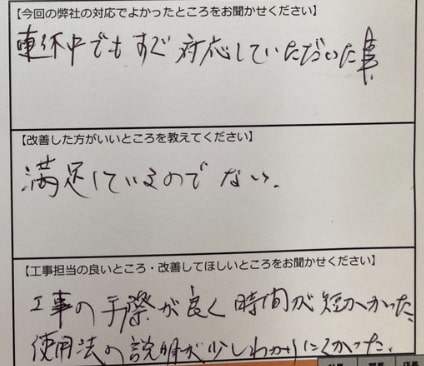 【今回の弊社の対応でよかったところをお聞かせください】
連休中でもすぐ対応していただいた事
【改善した方がいいところを教えてください】
満足しているのでない.
【工事担当の良いところ・改善してほしいところをお聞かせください】
工事の手際が良く時間が短かかった.
使用法の説明が少しわかりにくかった.